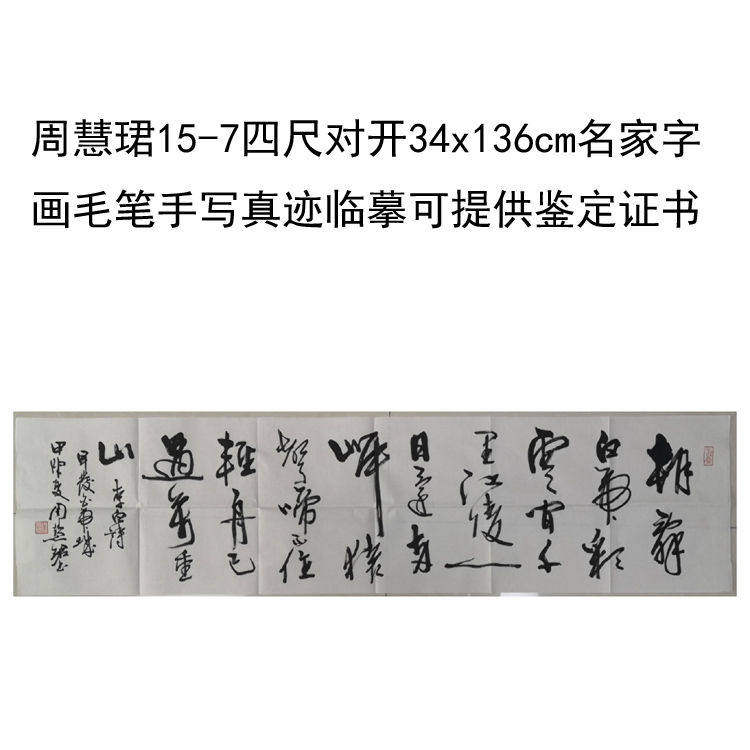 周慧珺15-7四尺对开34x136cm名家字
画毛笔手写真迹临摹可提供鉴定证书
朝辭
白帝彩
雲間千
里江陵一
日還兩
岸猿
聲啼不住
輕舟已
過萬重
山 李白诗
早發白帝城
周慧珺